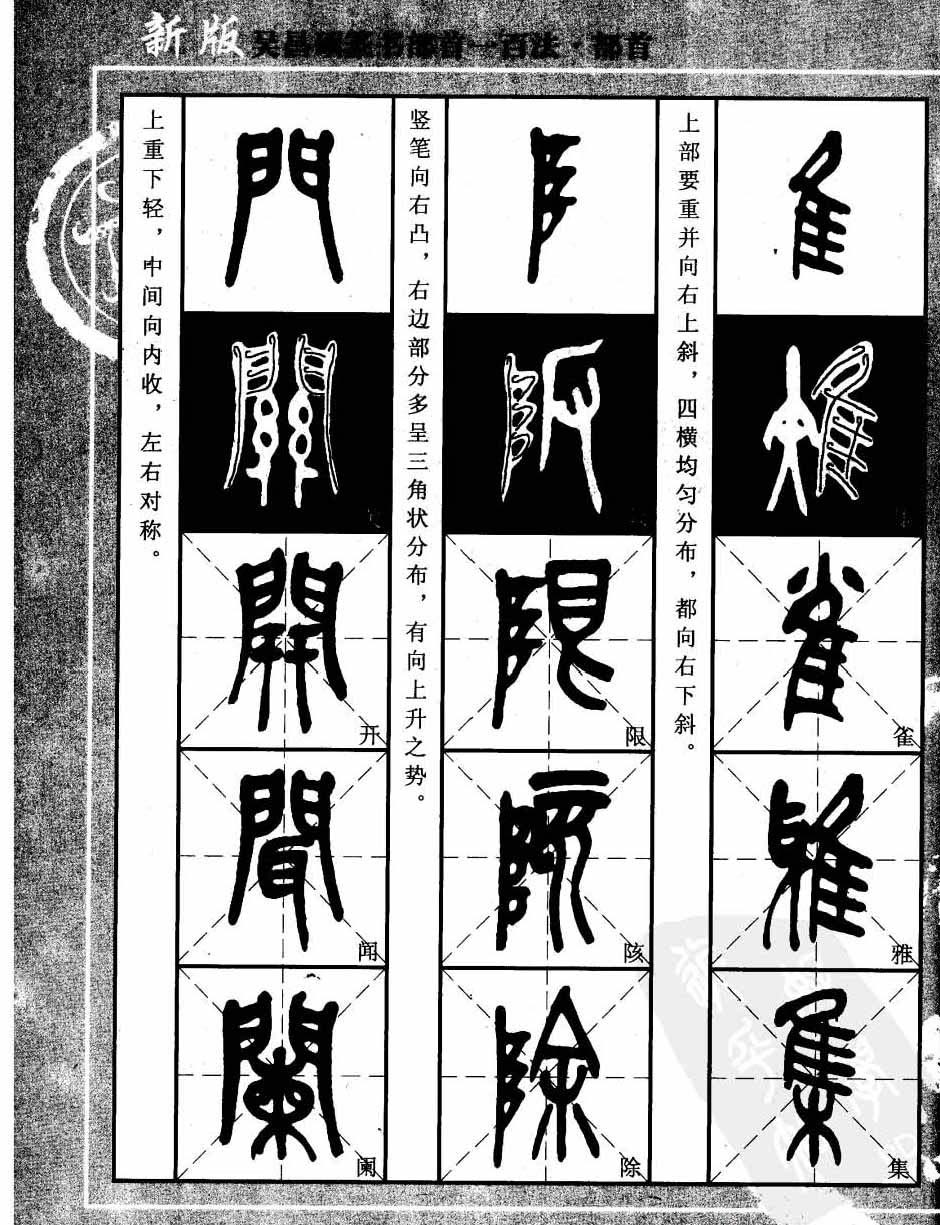 新版 吴昌硕篆书部首一百法·部首
隹
上部要重并向右上斜，四横均匀分布，都向右下斜。
雀
雀
雅
雅
集
集
阝
竖笔向右凸，右边部分多呈三角状分布，有向上升之势。
限
限
陔
陔
除
除
門
關
上重下轻，中间向内收，左右对称。
開
开
聞
闻
闌
阑